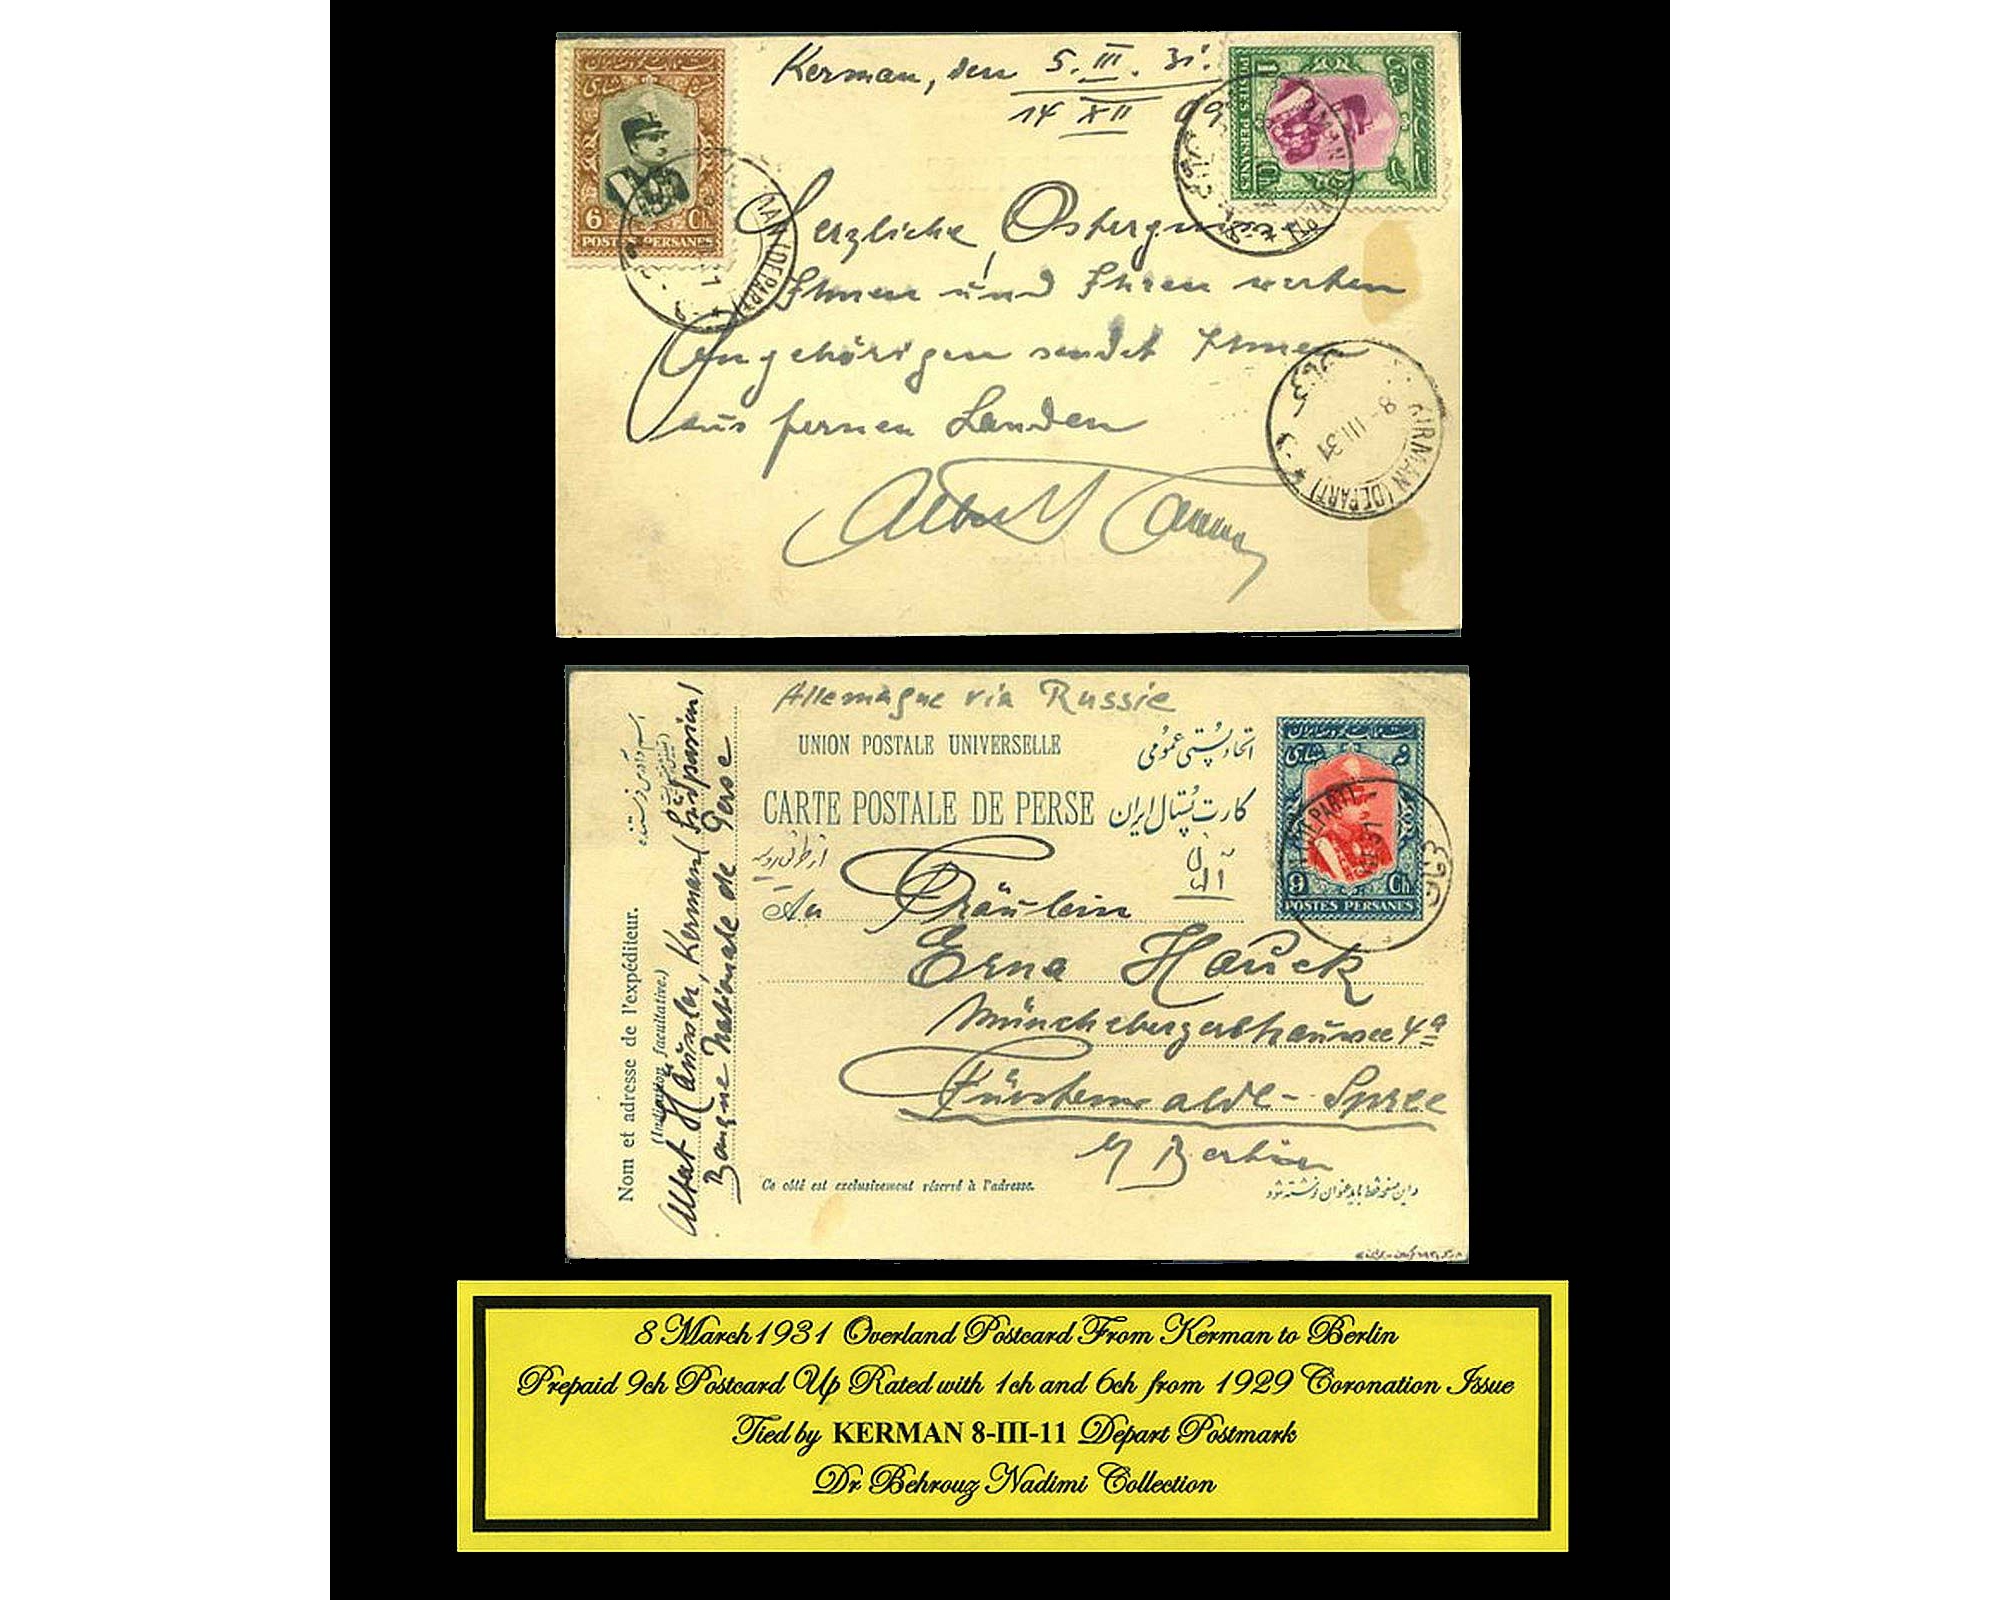 Kerman, den 5. III. 31.
14 XII 09
Herzliche Ostergrüße
Ihnen und Ihren werten
Angehörigen sendet Ihnen
aus fernen Landen
6 Ch
POSTES PERSANES
1 Ch
POSTES PERSANES
MAN (DEPART)
KIRMAN (DEPART)
8-III.31
Allemagne via Russie
UNION POSTALE UNIVERSELLE
اتحاد پستی عمومی
CARTE POSTALE DE PERSE
کارت پستال ایران
از طرف روسیه
An Fräulein
Erna Hauck
Münchebergerchaussee 4a
Fürstenwalde-Spree
b/ Berlin
9 Ch
POSTES PERSANES
Nom et adresse de l'expéditeur.
(Indication facultative.)
Albert Häusler, Kerman (Südpersien)
Banque Nationale de Perse
Ce côté est exclusivement réservé à l'adresse.
در این صفحه فقط باید عنوان نوشته شود
8 March 1931 Overland Postcard From Kerman to Berlin
Prepaid 9ch Postcard Up Rated with 1ch and 6ch from 1929 Coronation Issue
Tied by KERMAN 8-III-11 Depart Postmark
Dr Behrouz Nadimi Collection